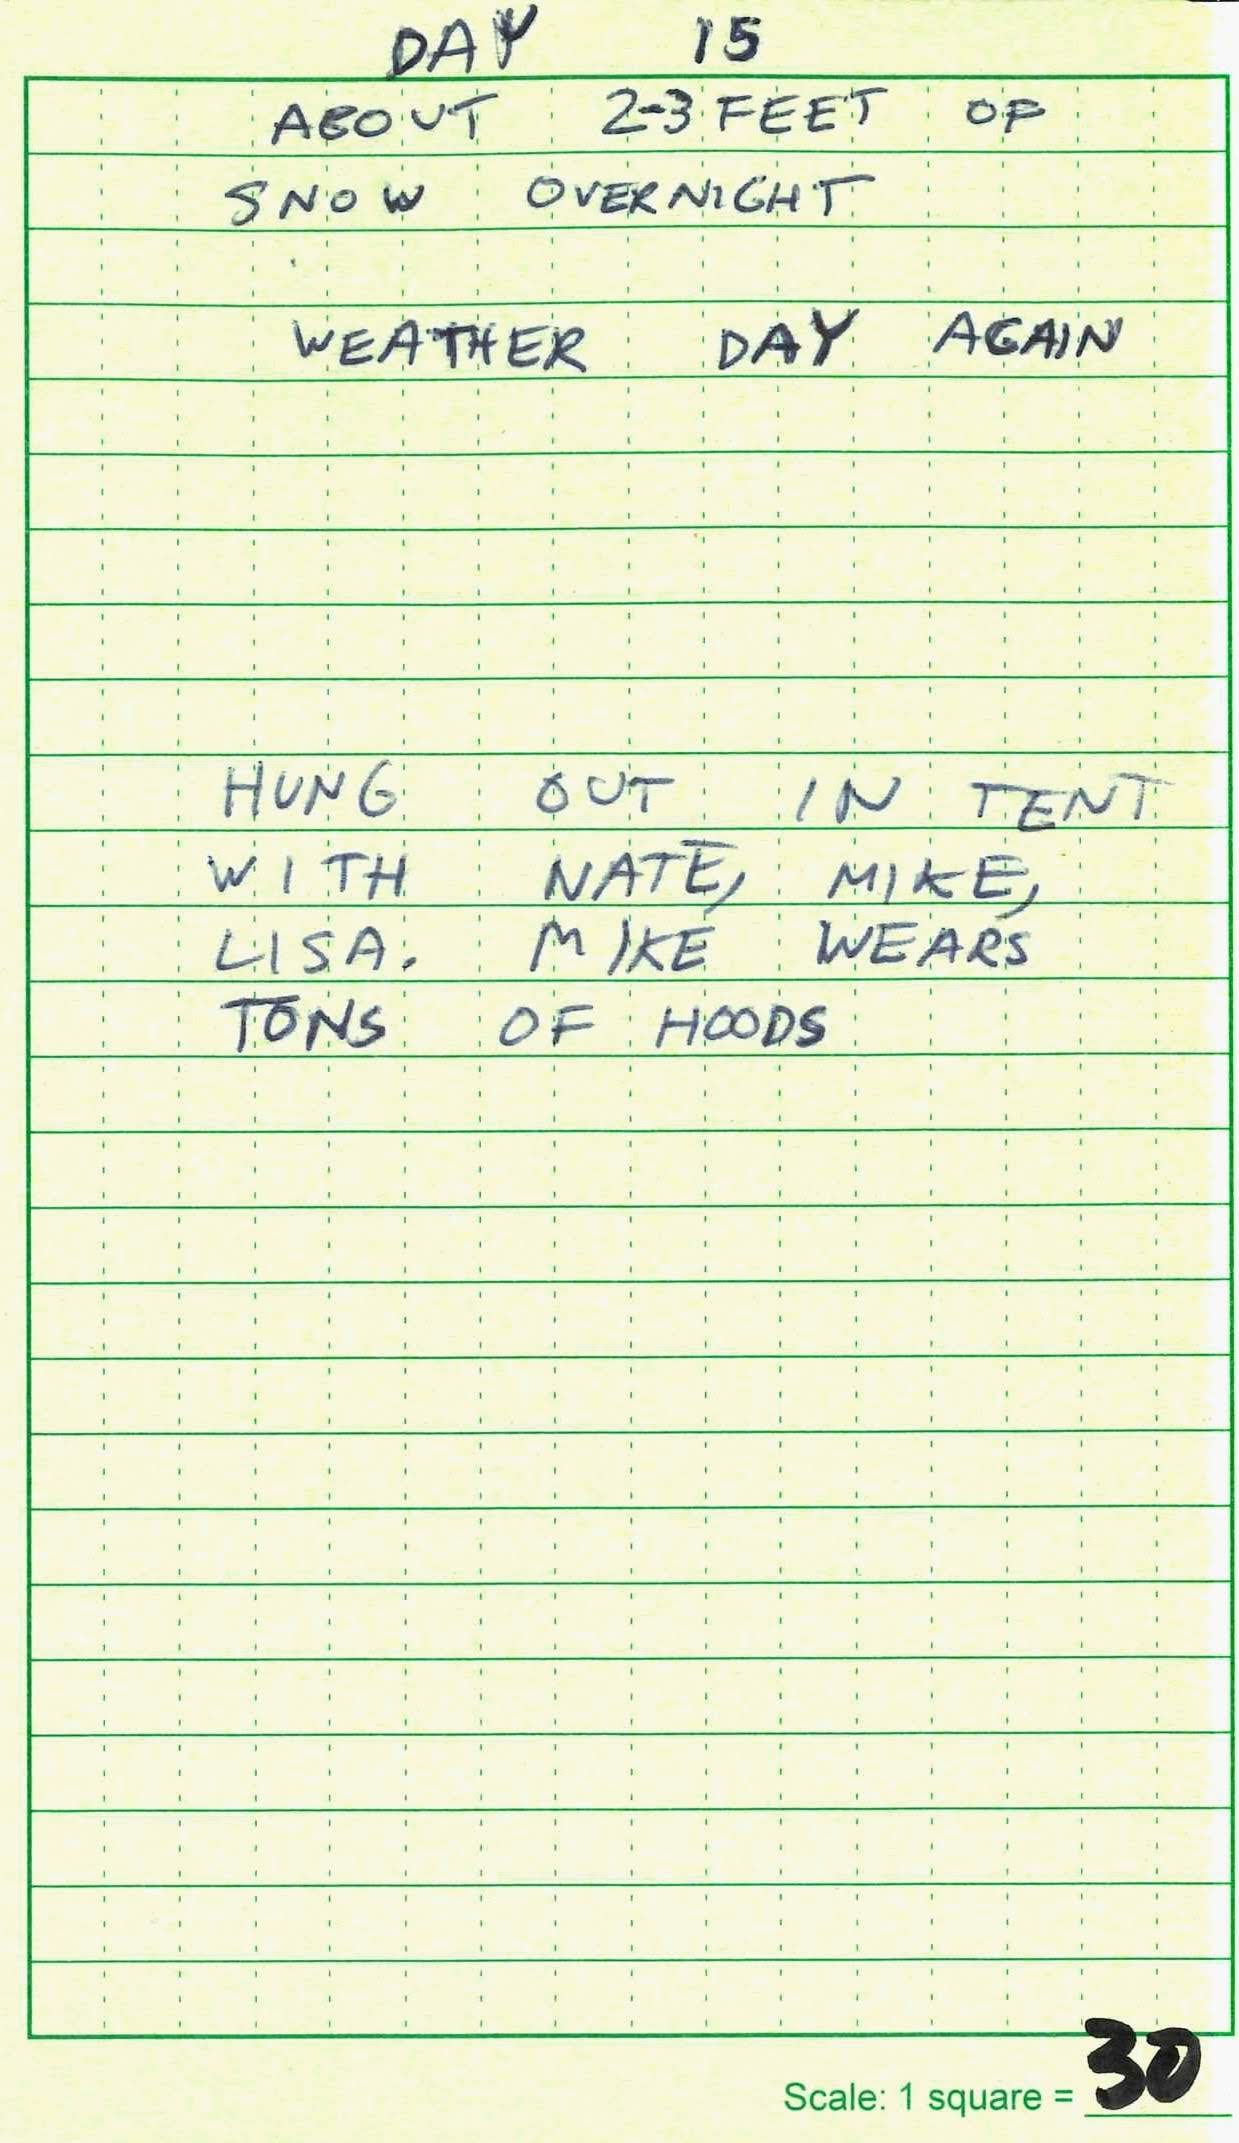 DAY 15
ABOUT 2-3 FEET OF
SNOW OVERNIGHT
WEATHER DAY AGAIN
HUNG OUT IN TENT
WITH NATE, MIKE,
LISA. MIKE WEARS
TONS OF HOODS
Scale: 1 square = 30